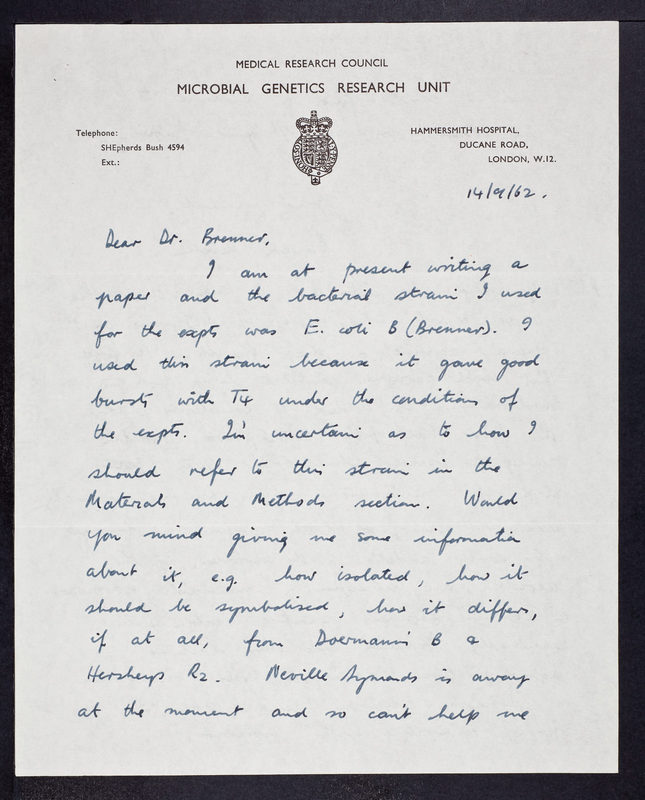 MEDICAL RESEARCH COUNCIL
MICROBIAL GENETICS RESEARCH UNIT
Telephone:
SHEpherds Bush 4594
Ext.:
HAMMERSMITH HOSPITAL,
DUCANE ROAD,
LONDON, W.12.
14/9/62.
Dear Dr. Brenner,
I am at present writing a
paper and the bacterial strain I used
for the expts was E. coli B (Brenner). I
used this strain because it gave good
bursts with T4 under the conditions of
the expts. I'm uncertain as to how I
should refer to this strain in the
Materials and Methods section. Would
you mind giving me some information
about it, e.g. how isolated, how it
should be symbolised, how it differs,
if at all, from Doermann's B &
Hersheys R2. Neville Symonds is away
at the moment and so can't help me